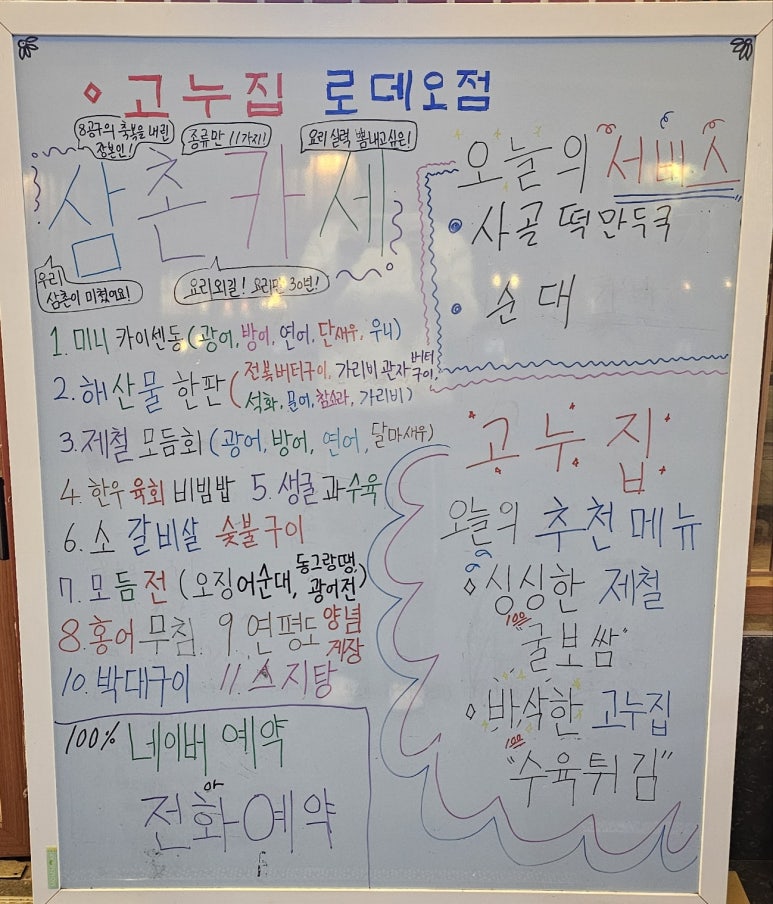 고누집 로데오점
8공구의 축복을 내린
장본인!
종류만 11가지!
요리 실력 뽐내고싶은!
삼촌카세
우리
삼촌이 미쳤어요!
요리외길! 요리만 30년!
1. 미니 카이센동 (광어, 방어, 연어, 단새우, 우니)
2. 해산물 한판 (전복버터구이, 가리비 관자 버터구이,
석화, 문어, 참소라, 가리비)
3. 제철 모듬회 (광어, 방어, 연어, 달마새우)
4. 한우 육회 비빔밥 5. 생굴과 수육
6. 소 갈비살 숯불구이
7. 모듬전 (오징어순대, 동그랑땡, 광어전)
8. 홍어 무침 9. 연평도 양념게장
10. 박대구이 11. 스지탕
100% 네이버 예약
전화 예약
오늘의 서비스
사골 떡만두국
순대
고누집
오늘의 추천 메뉴
싱싱한 제철
100 "굴보쌈"
바삭한 고누집
100 "수육튀김"